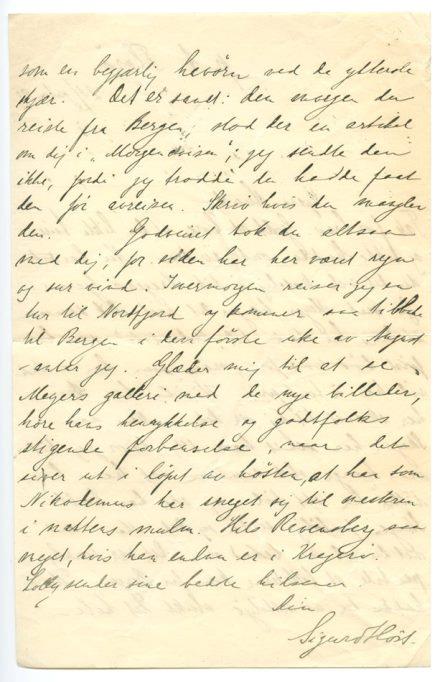 som en begjærlig havørn ved de ytterste
skjær. Det er sandt: den morgen du
reiste fra Bergen, stod der en artikel
om dig i „Morgenavisen"; jeg sendte den
ikke, fordi jeg trodde du hadde faat
den før avreisen. Skriv hvis du mangler
den. Godveiret tok du altsaa
med dig, for siden har her været regn
og sur vind. Ivermorgen reiser jeg en
tur til Nordfjord og kommer saa tilbake
til Bergen i den første uke av August
– antar jeg. Glæder mig til at se
Meyers galleri med de nye billeder,
høre hans henrykkelse og godtfolks
stigende forbauselse, naar det
siver ut i løpet av høsten, at han som
Nikodemus har sneget sig til mesteren
i nattens mulm. Hils Ravensberg saa
meget, hvis han endnu er i Kragerø.
Lolly sender sine bedste hilsener.
Din
Sigurd Høst.